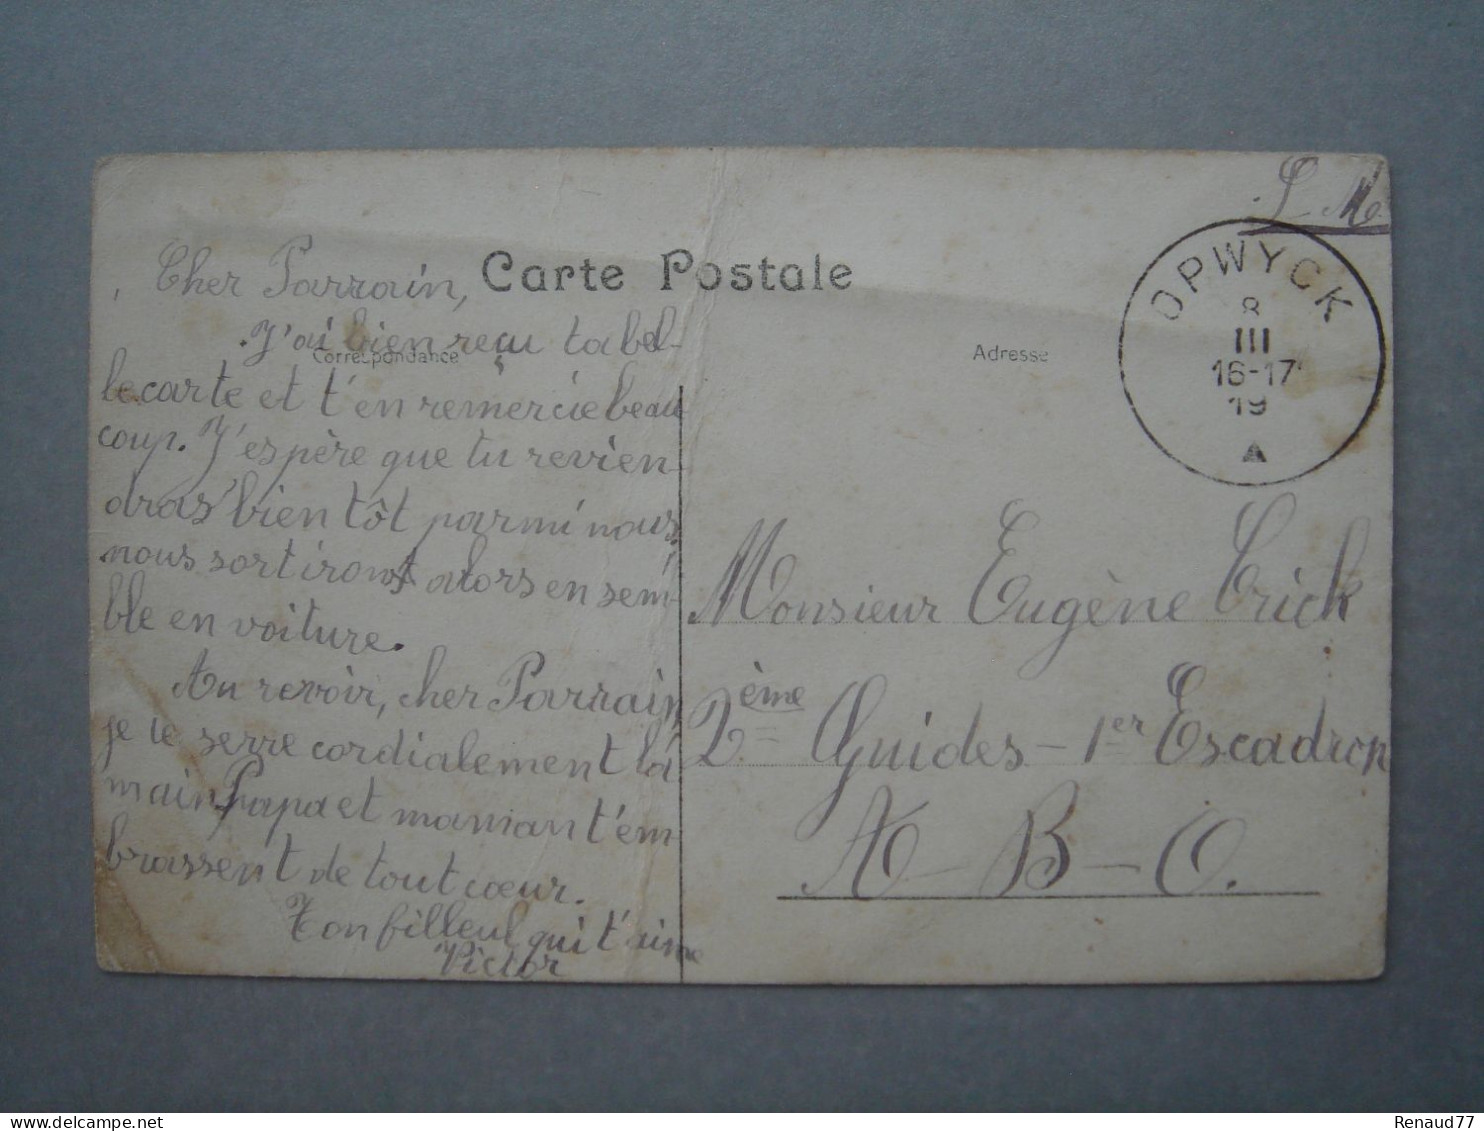 S M
Carte Postale
OPWYCK
8
III
16-17
19
Correspondance
Adresse
Cher Parrain,
J'ai bien reçu ta bel-
le carte et t'en remercie beau
coup. J'espère que tu revien-
dras bientôt parmi nous.
nous sortirons alors en sem-
ble en voiture.
Au revoir, cher Parrain,
je te serre cordialement la
main Papa et maman t'em
brassent de tout cœur.
Ton filleul qui t'aime
Victor
Monsieur Eugène Crick
2ème Guides - 1er Escadron
A - B - O.
Renaud77